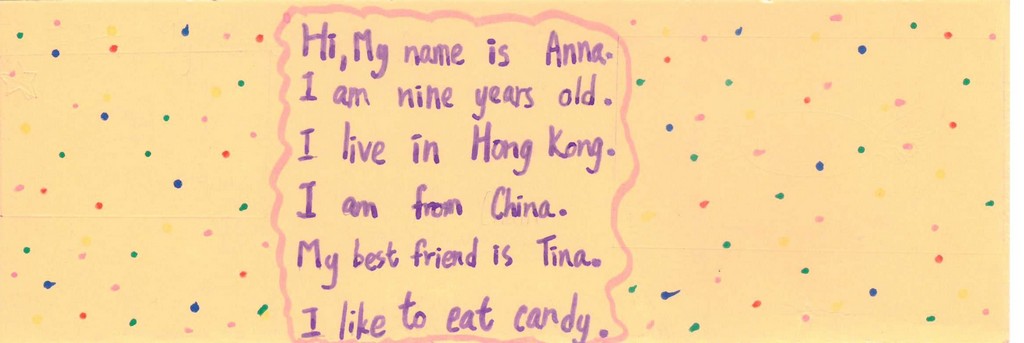 Hi, My name is Anna.
I am nine years old.
I live in Hong Kong.
I am from China.
My best friend is Tina.
I like to eat candy.